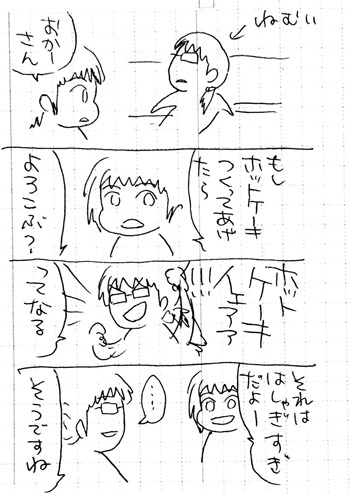 ねむい
おかー
さん
もし
ホットケーキ
つくってあげ
たら
よろこぶ?
ホット
ケーキ
イェアアア
!!!
ってなる
それは
はしゃぎすぎ
だよー
…
そうですね